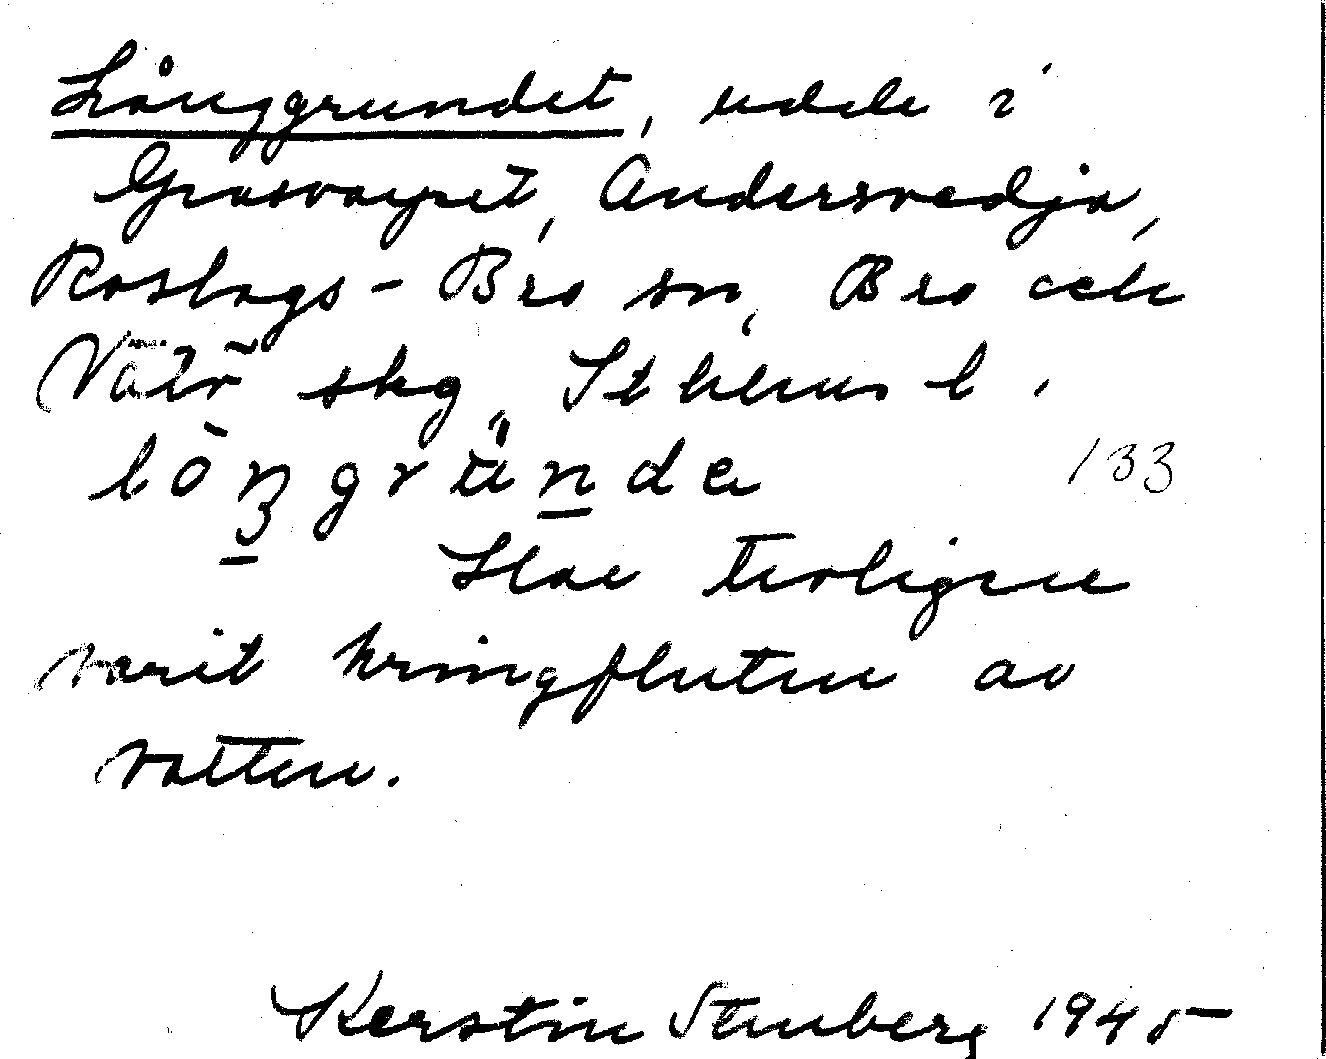 Långgrundet, udde i
Gräsvarpet, Andersvedja,
Roslags-Bro sn, Bro och
Vätö skg, Sthlms l.
lòŋgründe 133
Har tvoligen
varit kringfluten av
vatten.
Kerstin Stenberg 1945